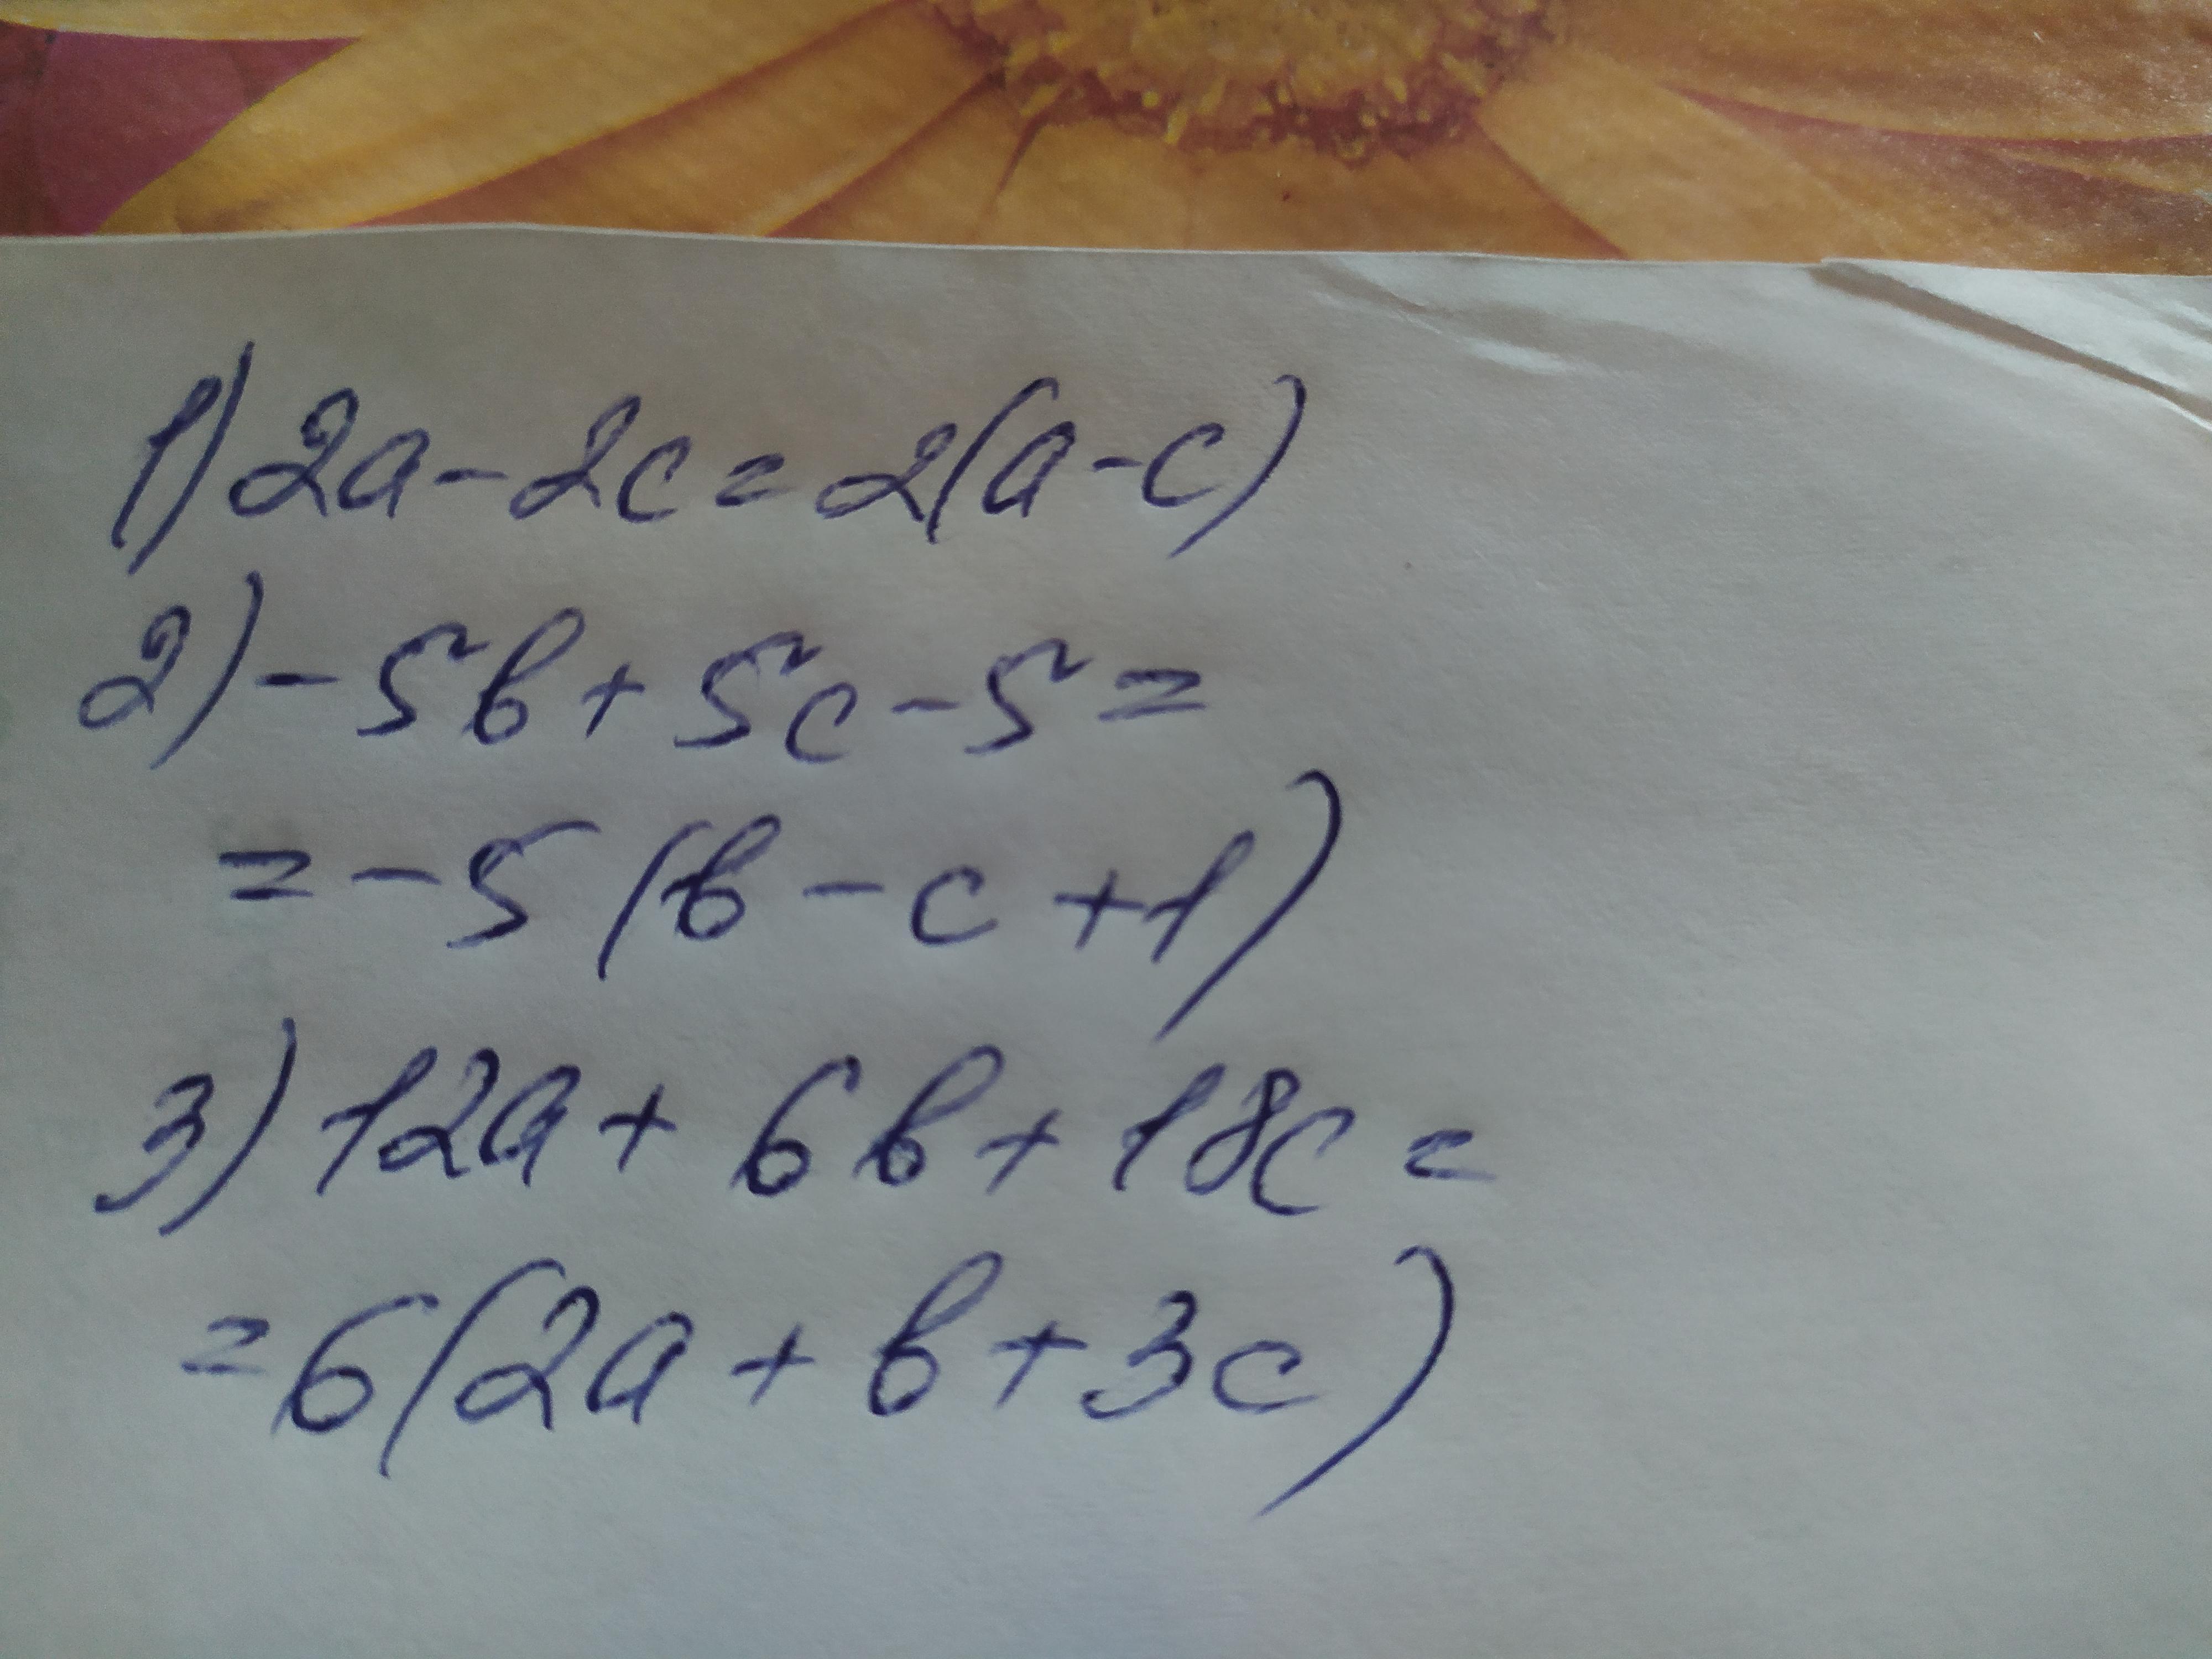 1) 2a - 2c = 2(a - c)
2) - 5b + 5c - 5 =
= - 5 (b - c + 1)
3) 12a + 6b + 18c =
= 6(2a + b + 3c)